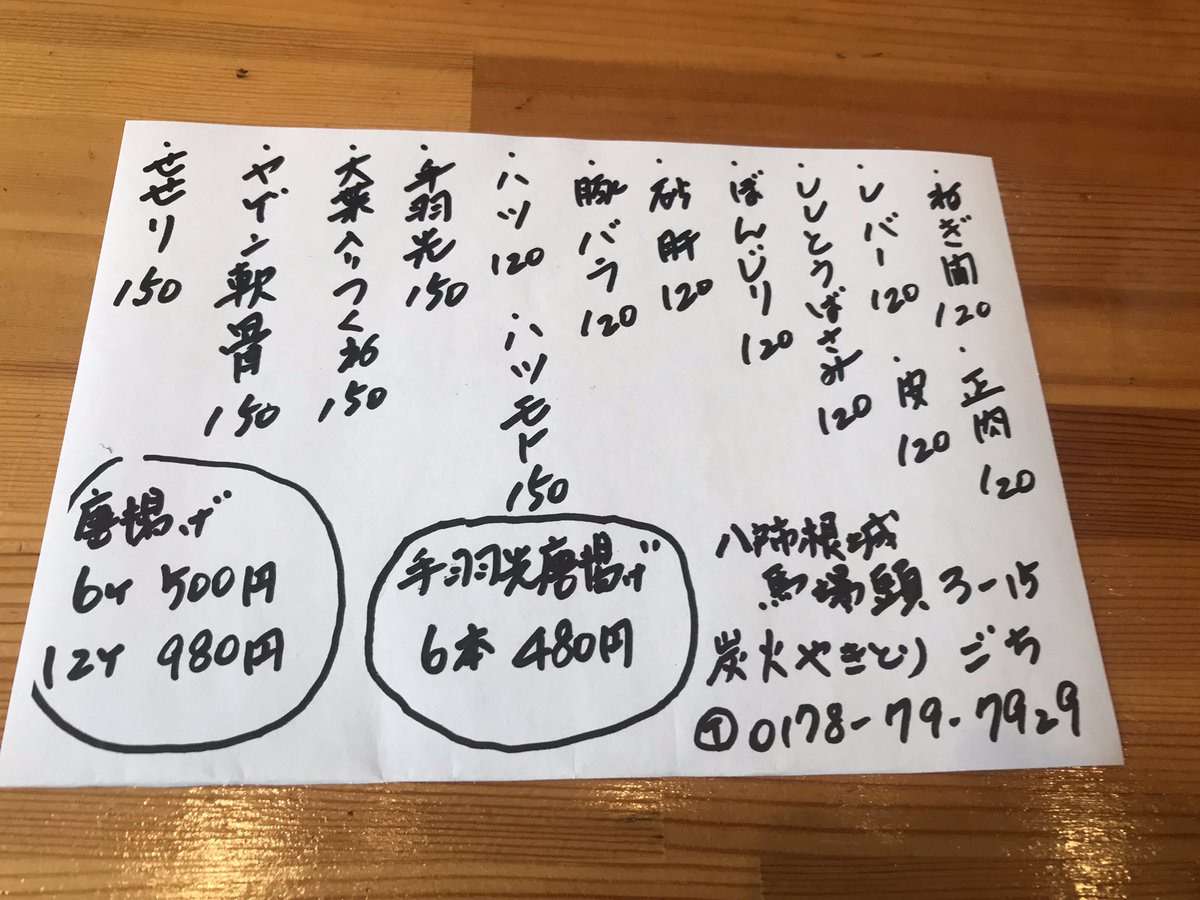 ・ねぎ間 120
・正肉 120
・レバー 120
・皮 120
・ししとうばさみ 120
・ぼんじり 120
・砂肝 120
・豚バラ 120
・ハツ 120
・ハツモト 150
・手羽先 150
・大葉入りつくね 150
・ヤゲン軟骨 150
・せせり 150
唐揚げ
6ケ 500円
12ケ 980円
手羽先唐揚げ
6本 480円
八市根城
馬場頭3-15
炭火やきとり ごち
Ⓣ0178-79-7929